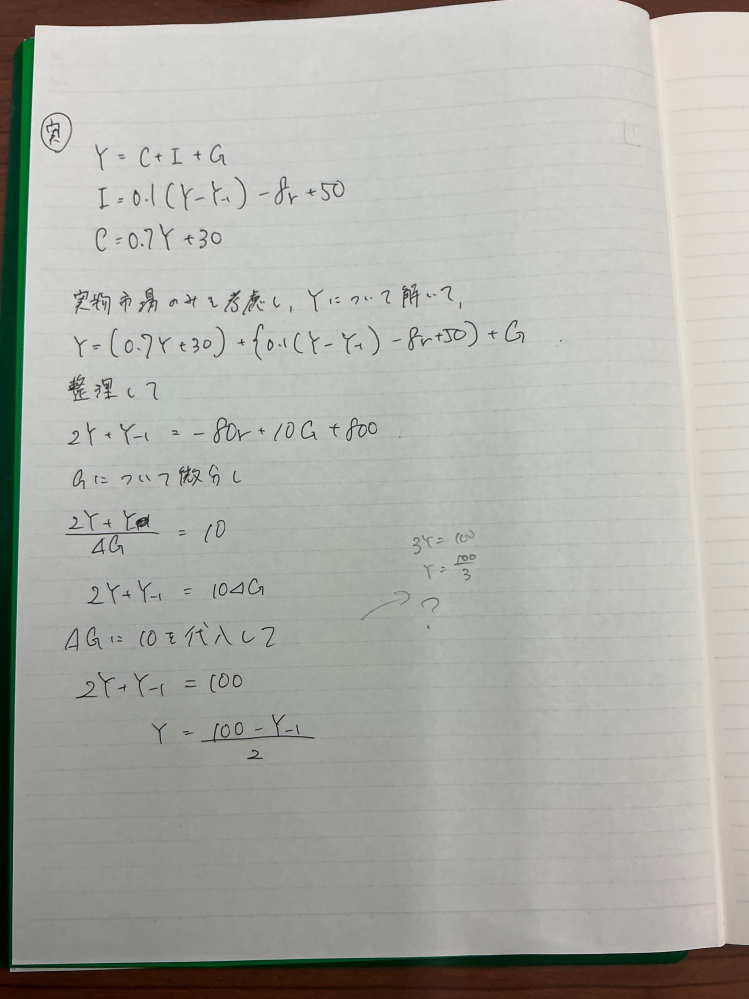 実
Y = C + I + G
I = 0.1(Y-Y₋₁) - 8r + 50
C = 0.7Y + 30
実物市場のみを考慮し、Yについて解いて、
Y = (0.7Y + 30) + {0.1(Y - Y₋₁) - 8r + 50) + G
整理して
2Y + Y₋₁ = -80r + 10G + 800
Gについて微分し
2Y + Y
ΔG
= 10
2Y + Y₋₁ = 10ΔG
ΔGに10を代入して
2Y + Y₋₁ = 100
Y = 100 - Y₋₁
2
3Y = 100
Y = 100
3
?